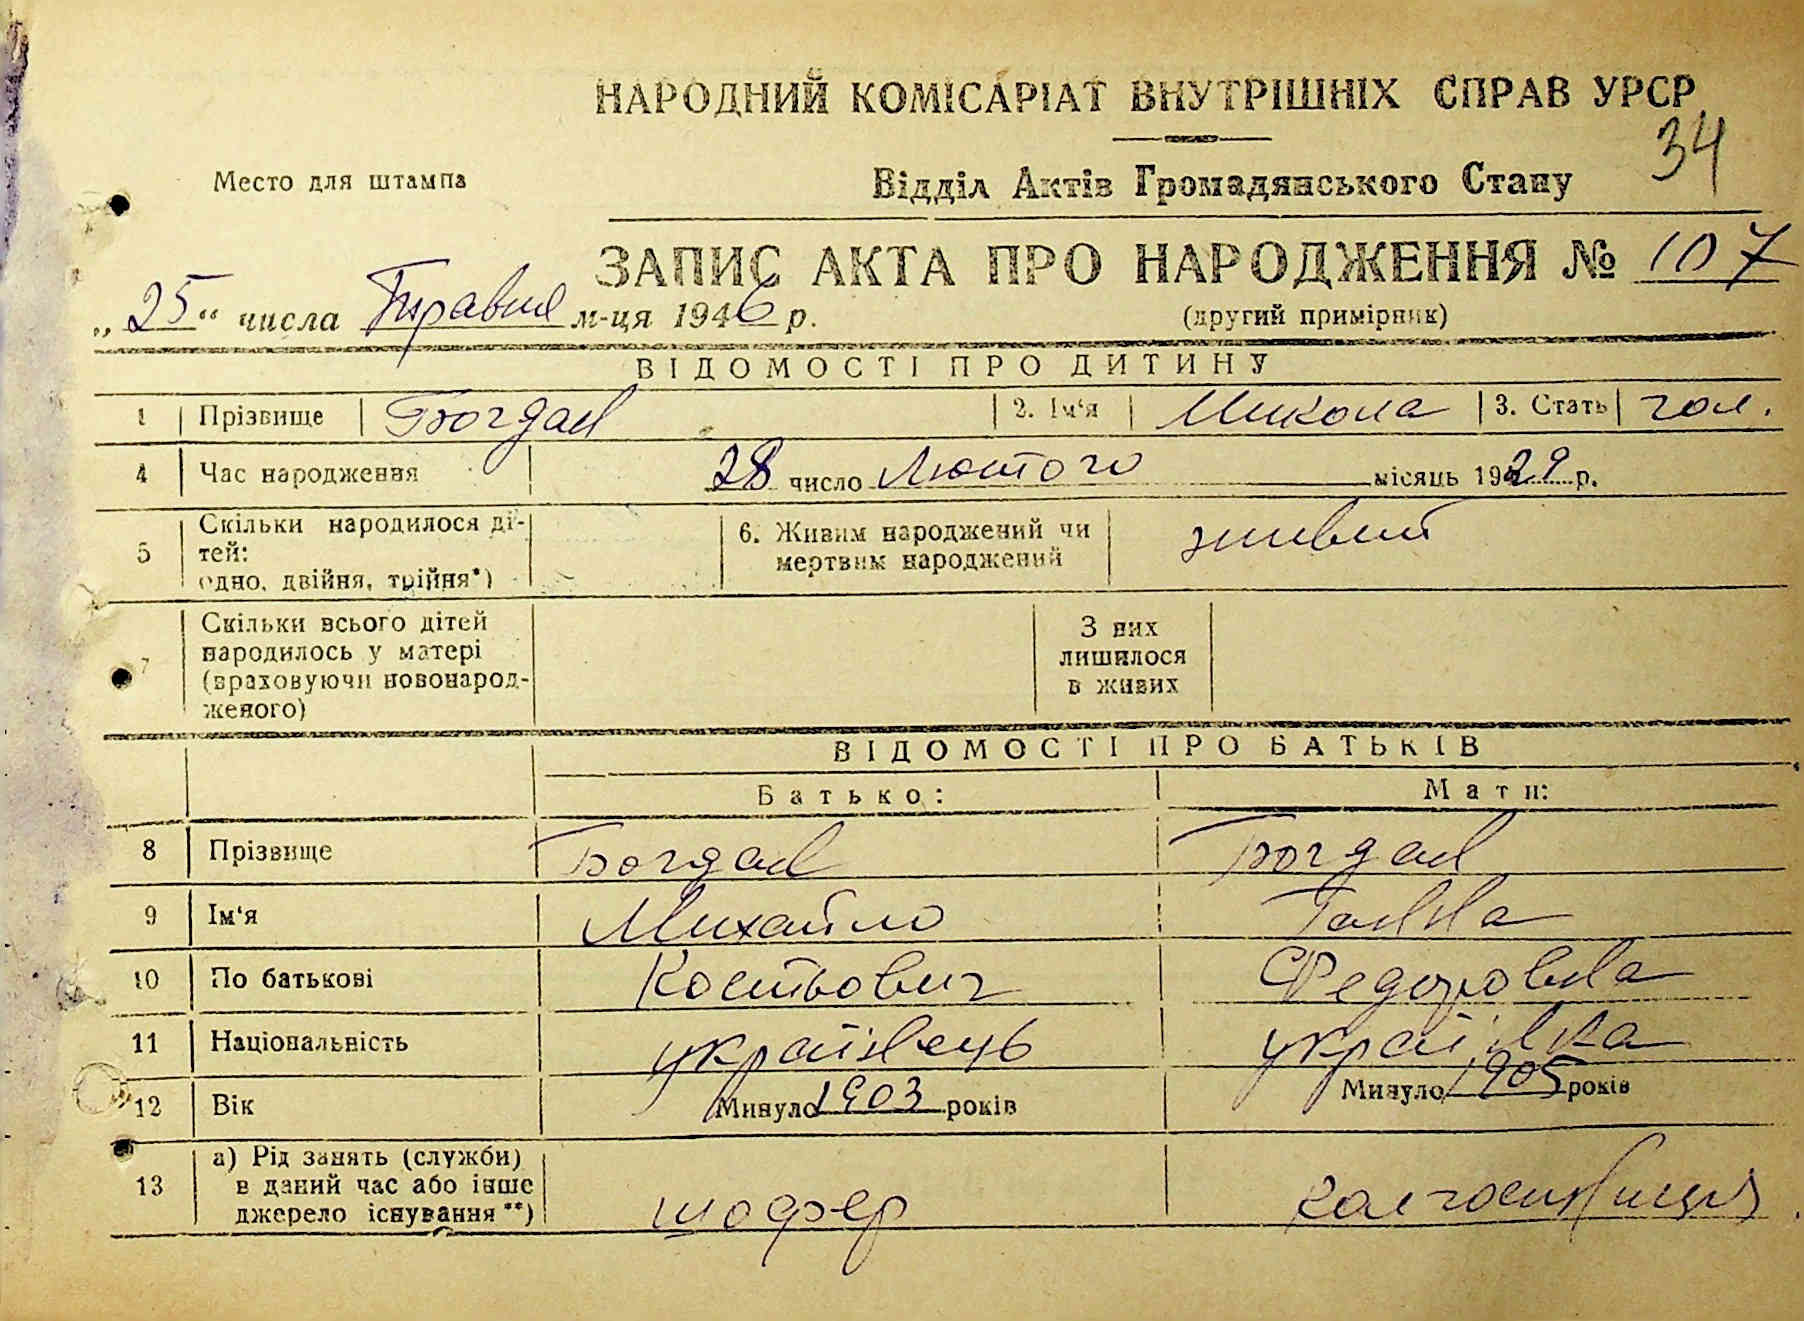 НАРОДНИЙ КОМІСАРІАТ ВНУТРІШНІХ СПРАВ УРСР
34
Место для штампа
Відділ Актів Громадянського Стану
ЗАПИС АКТА ПРО НАРОДЖЕННЯ № 107
„25“ числа Травня м-ця 1946 р.
(другий примірник)
ВІДОМОСТІ ПРО ДИТИНУ
1 Прізвище Богдан 2. Ім'я Микола 3. Стать чол.
4 Час народження 28 число Лютого місяць 1929 р.
5 Скільки народилося ді-
тей:
одно, двійня, трійня*)
6. Живим народжений чи
мертвим народжений
живий
7 Скільки всього дітей
народилось у матері
(враховуючи новонарод-
женого)
З них
лишилося
в живих
ВІДОМОСТІ ПРО БАТЬКІВ
Батько: Мати:
8 Прізвище Богдан Богдан
9 Ім'я Михайло Ганна
10 По батькові Костьович Федоровна
11 Національність українець українка
12 Вік Минуло 1903 років Минуло 1905 років
13 а) Рід занять (служби)
в даний час або інше
джерело існування**)
шофер колгоспниця